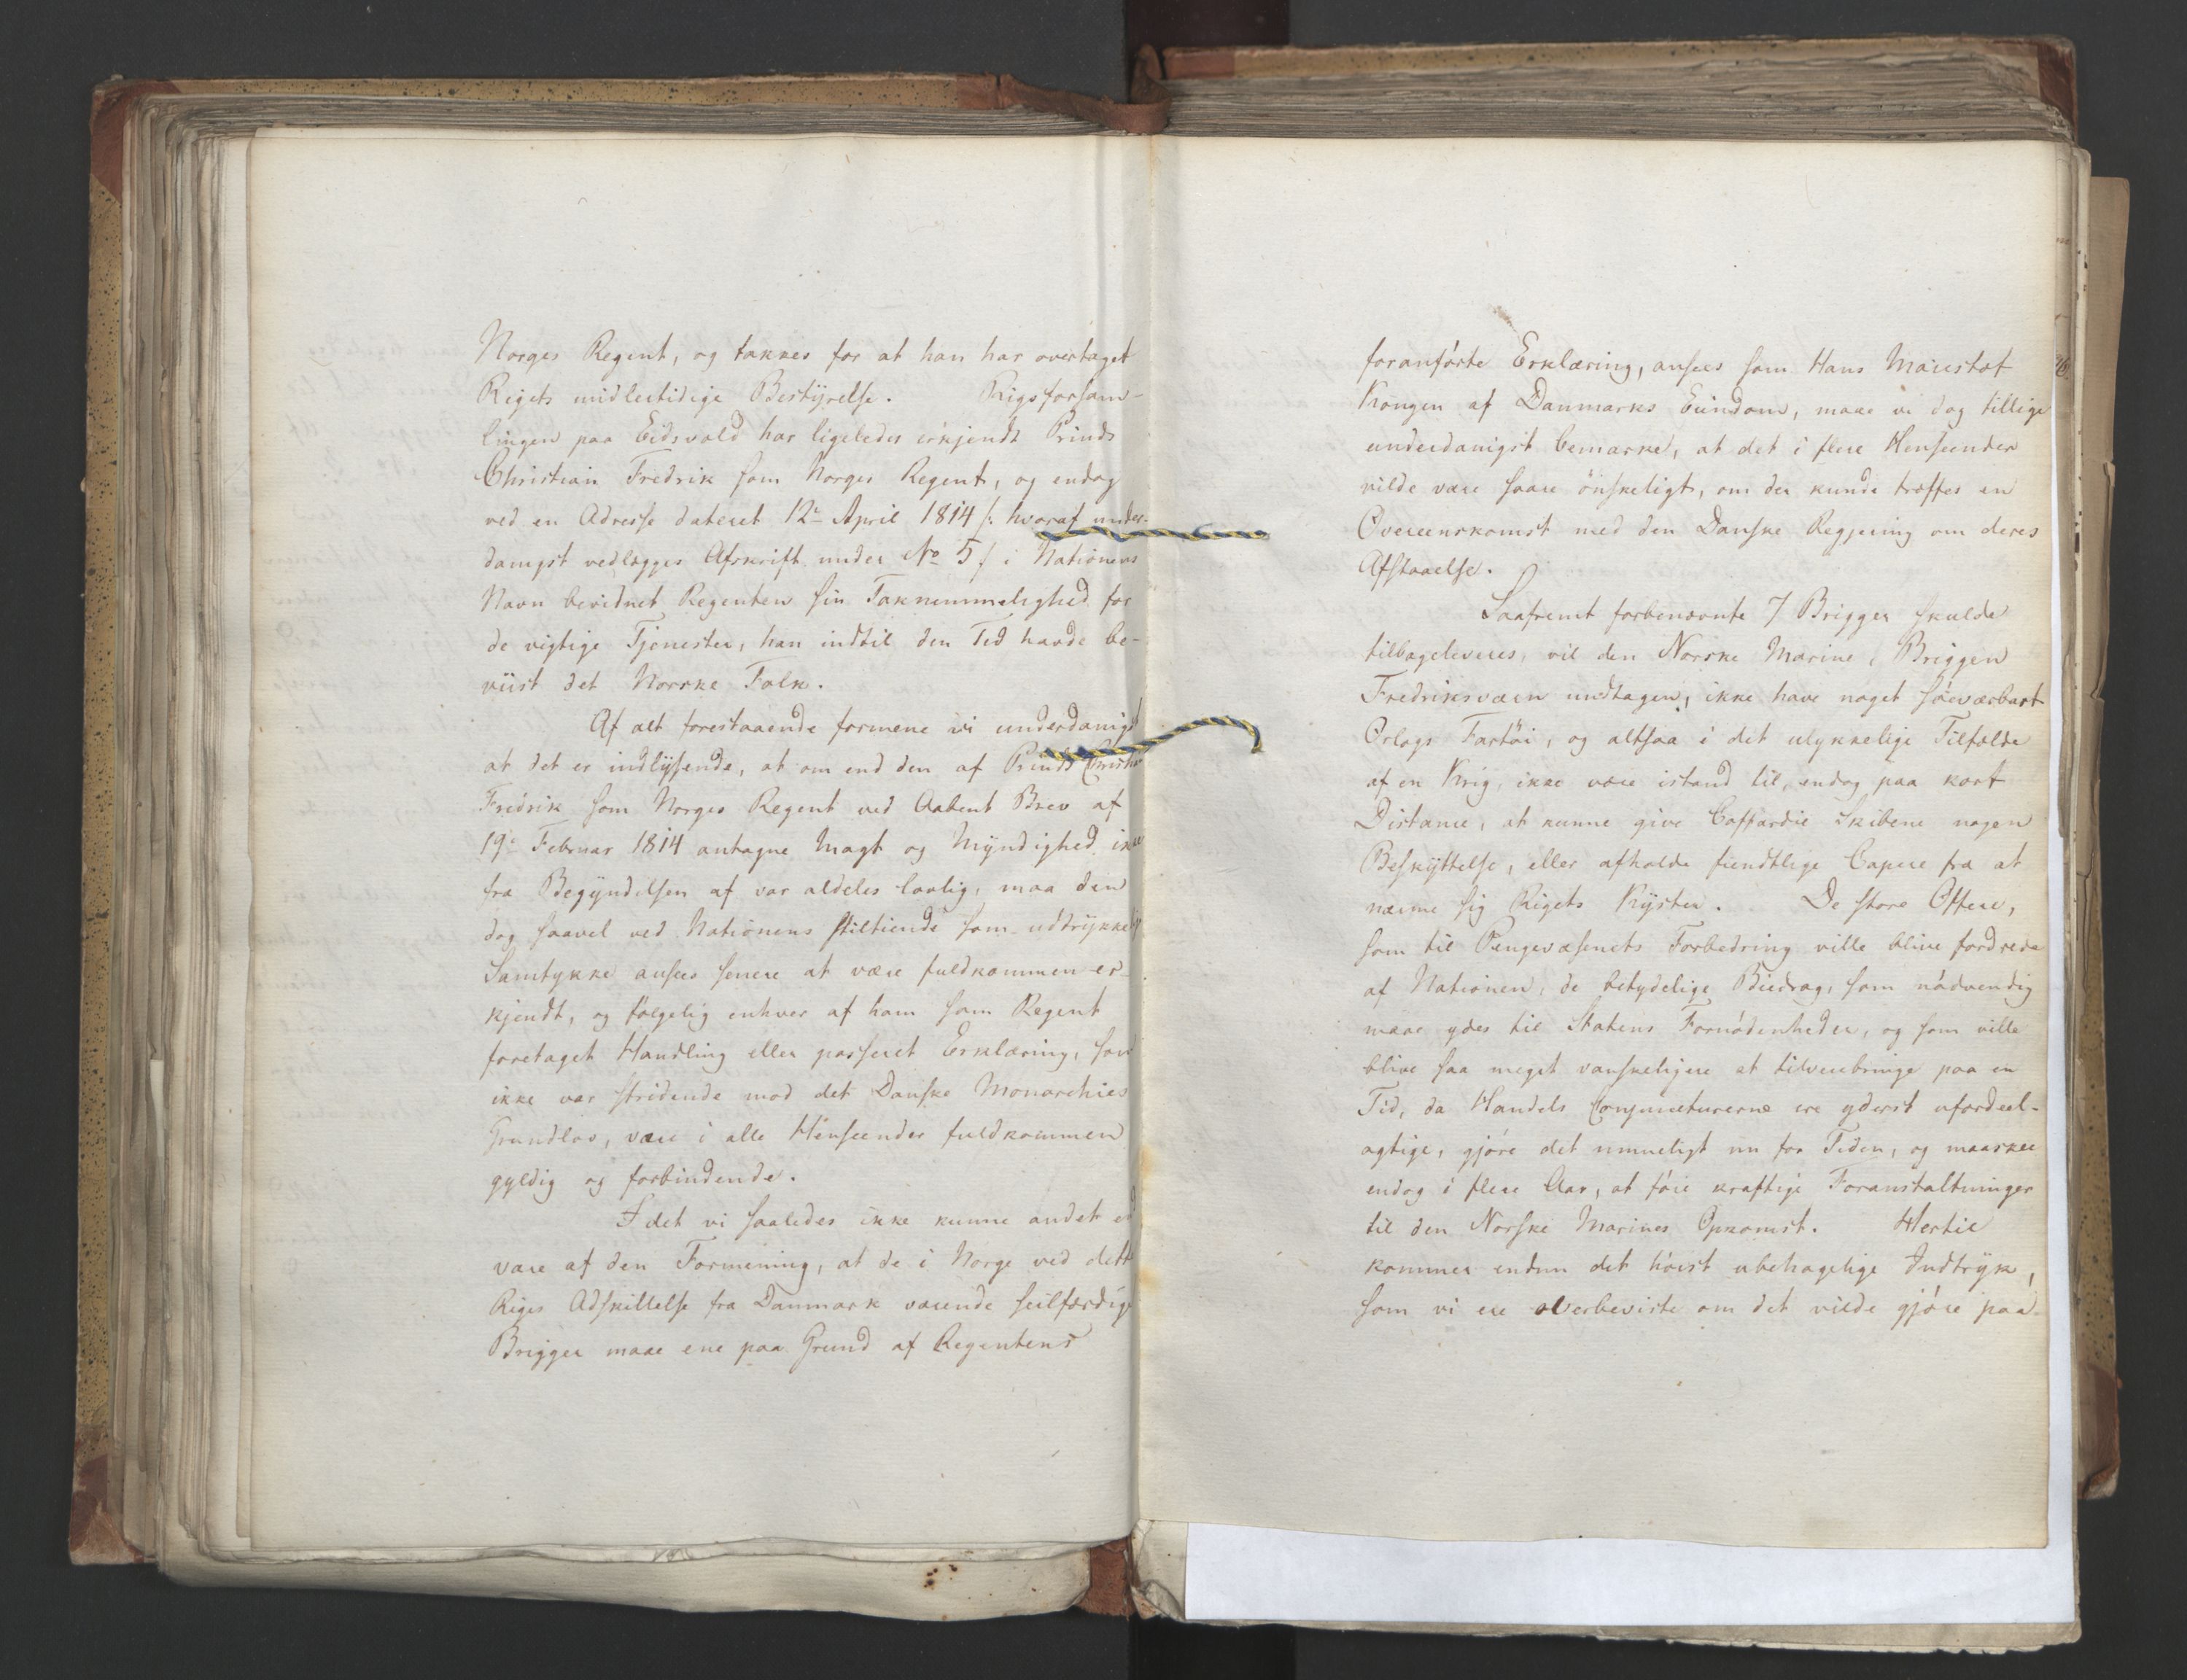 Norges Regent, og takkes for at han har overtaget
Rigets midlertidige Bestyrelse. Rigsforsam-
lingen paa Eidsvold har ligeledes erkjendt Prinds
Christian Fredrik som Norges Regent, og endog
ved en Adresse dateret 12te April 1814 /: hvoraf under-
danigst vedlægges Afskrift under No 5 / i Nationens
Navn bevidnet Regenten sin Taknemmelighed for
de vigtige Tjenester, han indtil den Tid havde be-
viist det Norske Folk.
Af alt forestaaende formene vi underdanigst
at det er indlysende, at om end den af Prinds Christian
Fredrik som Norges Regent ved Aabent Brev af
19de Februar 1814 antagne Magt og Myndighed ikke
fra Begyndelsen af var aldeles lovlig, maa den
dog saavel ved Nationens stiltiende som udtrykkelig
Samtykke ansees senere at være fuldkommen er-
kjendt, og følgelig enhver af ham som Regent
foretaget Handling eller passeret Erklæring, som
ikke var stridende mod det Danske Monarchies
Grundlov, være i alle Henseender fuldkommen
gyldig og forbindende.
I det vi saaledes ikke kunne andet end
være af den Formening, at de i Norge ved dette
Riges Adskillelse fra Danmark værende seilfærdige
Brigger maae ene paa Grund af Regentens
foranførte Erklæring, ansees som Hans Maiestæt
Kongen af Danmarks Eiendom, maae vi dog tillige
underdanigst bemærke, at det i flere Henseender
vilde være saare önskeligt, om der kunde træffes en
Overeenskomst med den Danske Regjering om deres
Afstaaelse.
Saafremt forbenævnte 7 Brigger skulde
tilbageleveres, vil den Norske Marine, Briggen
Fredriksværn undtagen, ikke have noget søeværbart
Orlogs Fartöi, og altsaa i det ulykkelige Tilfælde
af en Krig, ikke være istand til, endog paa kort
Distance, at kunne give Coffardie Skibene nogen
Beskyttelse, eller afholde fiendtlige Capere fra at
nærme sig Rigets Kyster. De store Offere,
som til Pengevæsenets Forbedring ville blive fordrede
af Nationen, de betydelige Bidrag, som nødvendig
maae ydes til Statens Fornødenheder, og som ville
blive saa meget vanskeligere at tilveiebringe paa en
Tid, da Handels Conjuncturerne ere yderst ufordeel-
agtige, gjøre det umueligt nu for Tiden, og maaskee
endog i flere Aar, at føie kraftige Foranstaltninger
til den Norske Marines Opkomst. Hertil
kommer endnu det høist ubehagelige Indtryk,
som vi ere overbeviste om det vilde gjøre paa